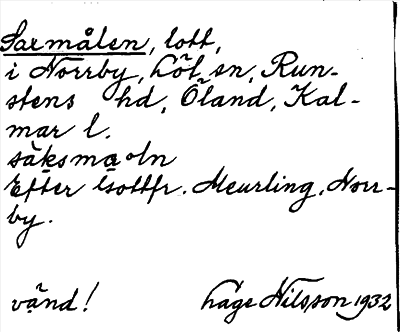 Saxmålen, lott,
i Norrby, Löt sn, Run-
stens hd, Öland, Kal-
mar l.
Efter Gottfr. Meurling, Norr-
by.
vänd! Låge Nilsson 1932